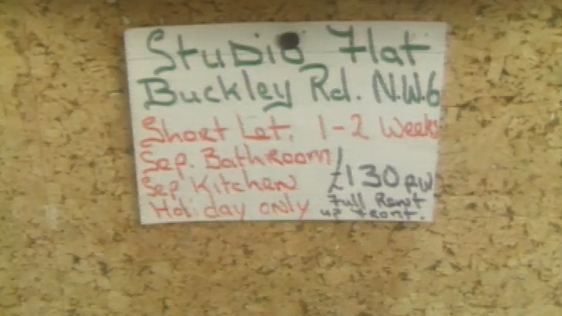 Studio Flat
Buckley Rd. N.W.6
Short Let. 1-2 Weeks
Sep. Bathroom/
Sep Kitchen £130 pw
Holiday only Full Rent
up front.